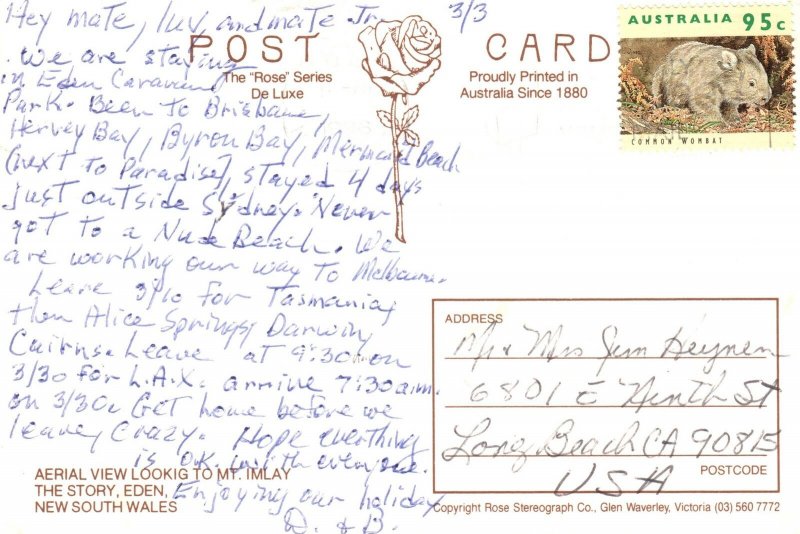 Hey mate, luv and mate Jr. 3/3
We are staying
in Eden Caravan
Park. Been to Brisbane,
Hervey Bay, Byron Bay, Mermaid Beach
(next to Paradise), stayed 4 days
just outside Sydney. Never
got to a Nude Beach. We
are working our way to Melbourne.
Leave 3/10 for Tasmania,
then Alice Springs, Darwin,
Cairns. Leave at 9:30 on
3/30 for L.A.X. arrive 7:30 a.m.
on 3/30. Get home before we
leave, crazy. Hope everthing
is o.k. with everyone.
Enjoying our holiday
D. & B.
POST CARD
The "Rose" Series
De Luxe
Proudly Printed in
Australia Since 1880
AUSTRALIA 95c
COMMON WOMBAT
ADDRESS
Mr & Mrs Jim Heynen
6801 E Ninth St
Long Beach CA 90815
USA
POSTCODE
AERIAL VIEW LOOKIG TO MT. IMLAY
THE STORY, EDEN,
NEW SOUTH WALES
Copyright Rose Stereograph Co., Glen Waverley, Victoria (03) 560 7772